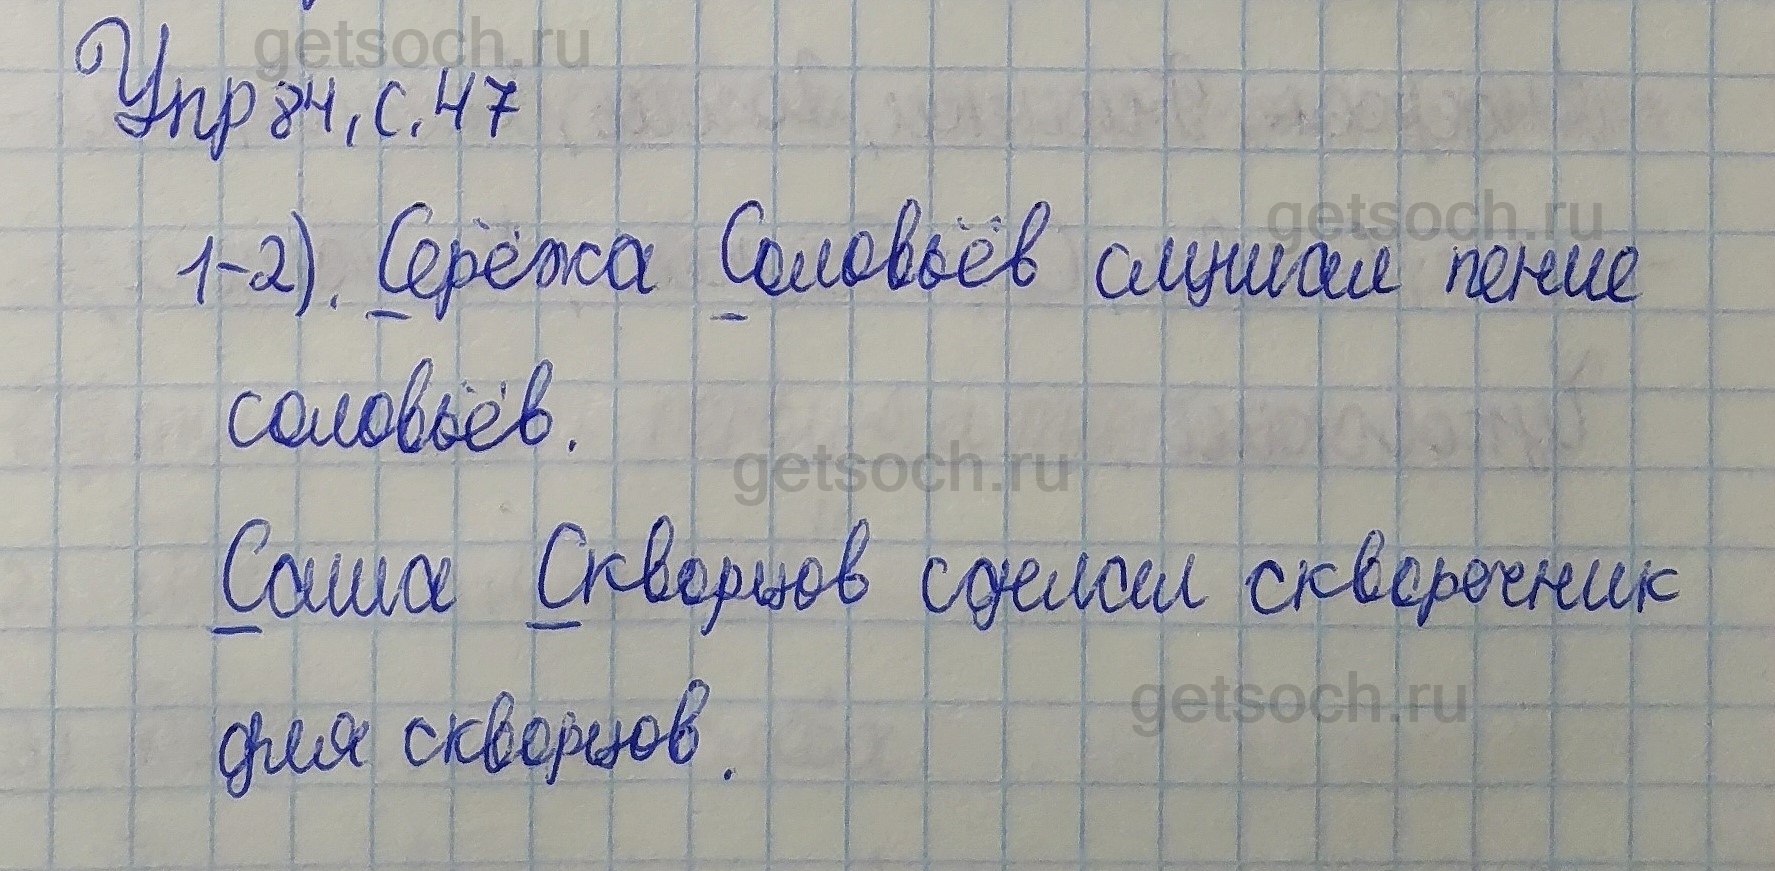 getsoch.ru
Упр 84, с. 47
getsoch.ru
1-2). Серёжа Соловьёв слушал пение
соловьёв.
getsoch.ru
Саша Скворцов сделал скворечник
getsoch.ru
для скворцов.